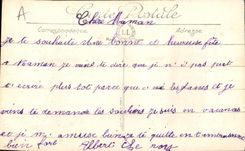 A
Carte Postale
Correspondance Adresse
Chère Maman
je te souhaite une bonne et heureuse fête
Maman je vent te dire que je n'ai pas put
écrire plus tot parce que les et je
viens te demande les je suis en vacances
et je m'amuse bien je te quitte en t'embrassant
bien fort Albert